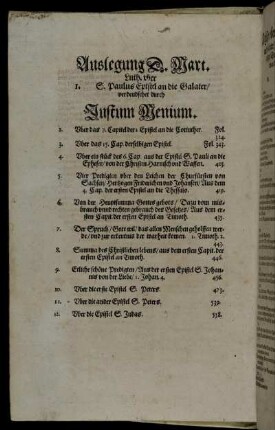 Auslegung D. Mart.
Luth. vber
1. S. Paulus Epistel an die Galater/
verdeudschet durch
Justum Menium.
2. Vber das 7. Capitel der 1 Epistel an die Corinther. Fol.
324.
3. Vber das 15. Cap. derselbigen Epistel Fol. 343.
4. Vber ein stück des 6 Cap. aus der Epistel S. Pauli an die
Epheser/ von der Christen Harnisch vnd Waffen.
5. Vier Predigten vber den Leichen der Churfürsten von
Sachsen/ Hertzogen Friderichen vnd Johansen/ Aus dem
4. Cap. der ersten Epistel an die Thessalo.
6. Von der Heuptsumma Gottes gebots/ Dazu vom mis-
brauch vnd rechten gebrauch des Gesetzes/ Aus dem er-
sten Capit. der ersten Epistel an Timoth.
7. Der Spruch/ Gott wil/ das allen Menschen geholffen wer-
de/ vnd zur erkentnis der warheit komen. 1. Timoth. 2.
8. Summa des Christlichen lebens/ aus dem ersten Capit. der
ersten Epistel an Timoth.
9. Etliche schöne Predigten/ Aus der ersten Epistel S. Johan-
nis von der Liebe/ 1. Johan. 4.
10. Vber die erste Epistel S. Peters
11. Vber die ander Epistel S. Peters
12. Vber die Epistel S. Judas.